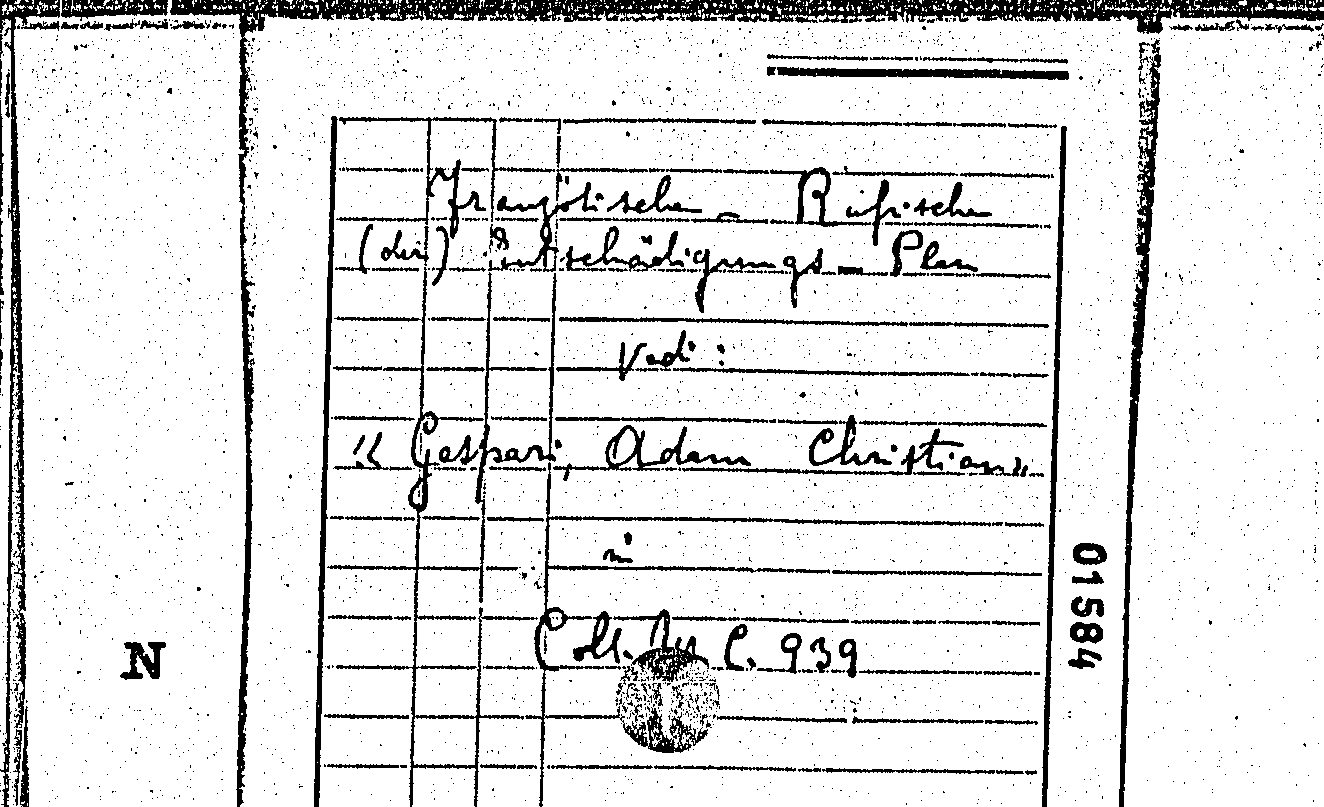 Französischen - Russischen
(der) Entschädigungs - Plan
Vedi:
« Gaspari, Adam Christian »
in
Coll. C. 939
01584
N